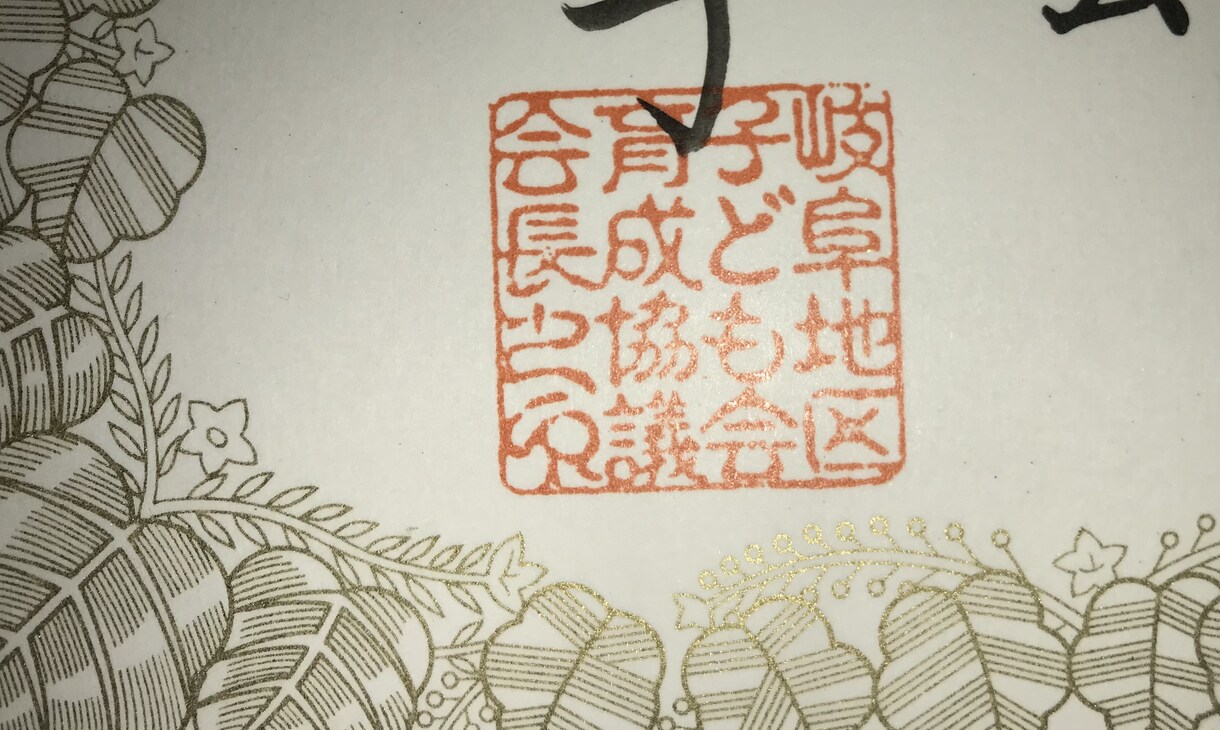 岐阜地区
子ども会
育成協議
会長之印